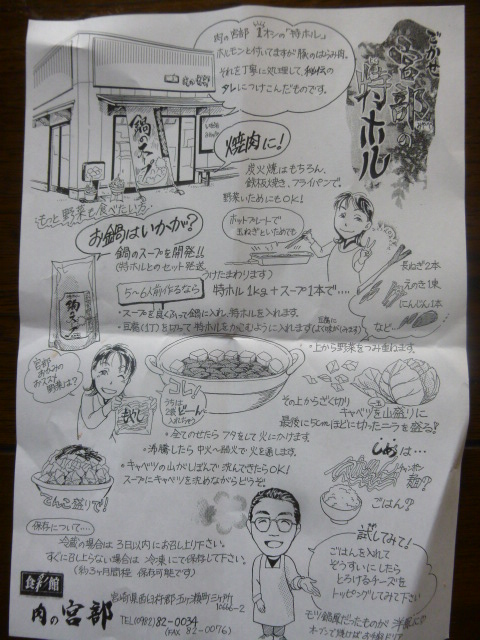 ごかせ
宮部の
特ホル
肉の宮部 1オシの「特ホル」
ホルモンと付いてますが豚のはらみ肉。
それを丁寧に処理して、秘伝の
タレにつけこんだものです。
鍋のスープ
焼肉に!
炭火焼はもちろん、
鉄板焼き、フライパンで。
野菜いためにもOK!
ホットプレートで
玉ねぎといためても
もっと野菜も食べたい方
お鍋はいかが?
鍋のスープを開発!!
(特ホルとのセット発送
うけたまわります)
5~6人前作るなら
特ホル1kg+スープ1本で‥‥
長ねぎ2本
えのき1束
にんじん1本
など…
・スープを良くふって鍋に入れ、特ホルを入れます。
・豆腐(1丁)を切って特ホルをかこむように入れます
・上から野菜をつみ重ねます。
鍋のスープ
宮部
おススメ
野菜は?
もやし
コレ!
うちは
2袋どーん
その上からざく切り
キャベツを山盛りに
最後に5cmほどに切ったニラを盛る!
・全てのせたらフタをして火にかけます。
・沸騰したら中火~弱火で火を通します。
・キャベツの山がしぼんで沈んできたらOK!
スープにキャベツを沈めながらどうぞ。
てんこ盛りで!
〆は…
チャンポン
麺?
ごはん?
保存について‥‥
冷蔵の場合は3日以内にお召し上り下さい。
すぐに召し上らない場合は冷凍にて保存して下さい。
(約3ヶ月間程保存可能です)
試してみて!
ごはんを入れて
ぞうすいにしたら
とろけるチーズを
トッピングしてみて下さい
モツ鍋風だったものが洋風に
食彩館
肉の宮部
宮崎県西臼杵郡五ヶ瀬町三ヶ所
10666-2
TEL(0982)82-0034
(FAX 82-0076)